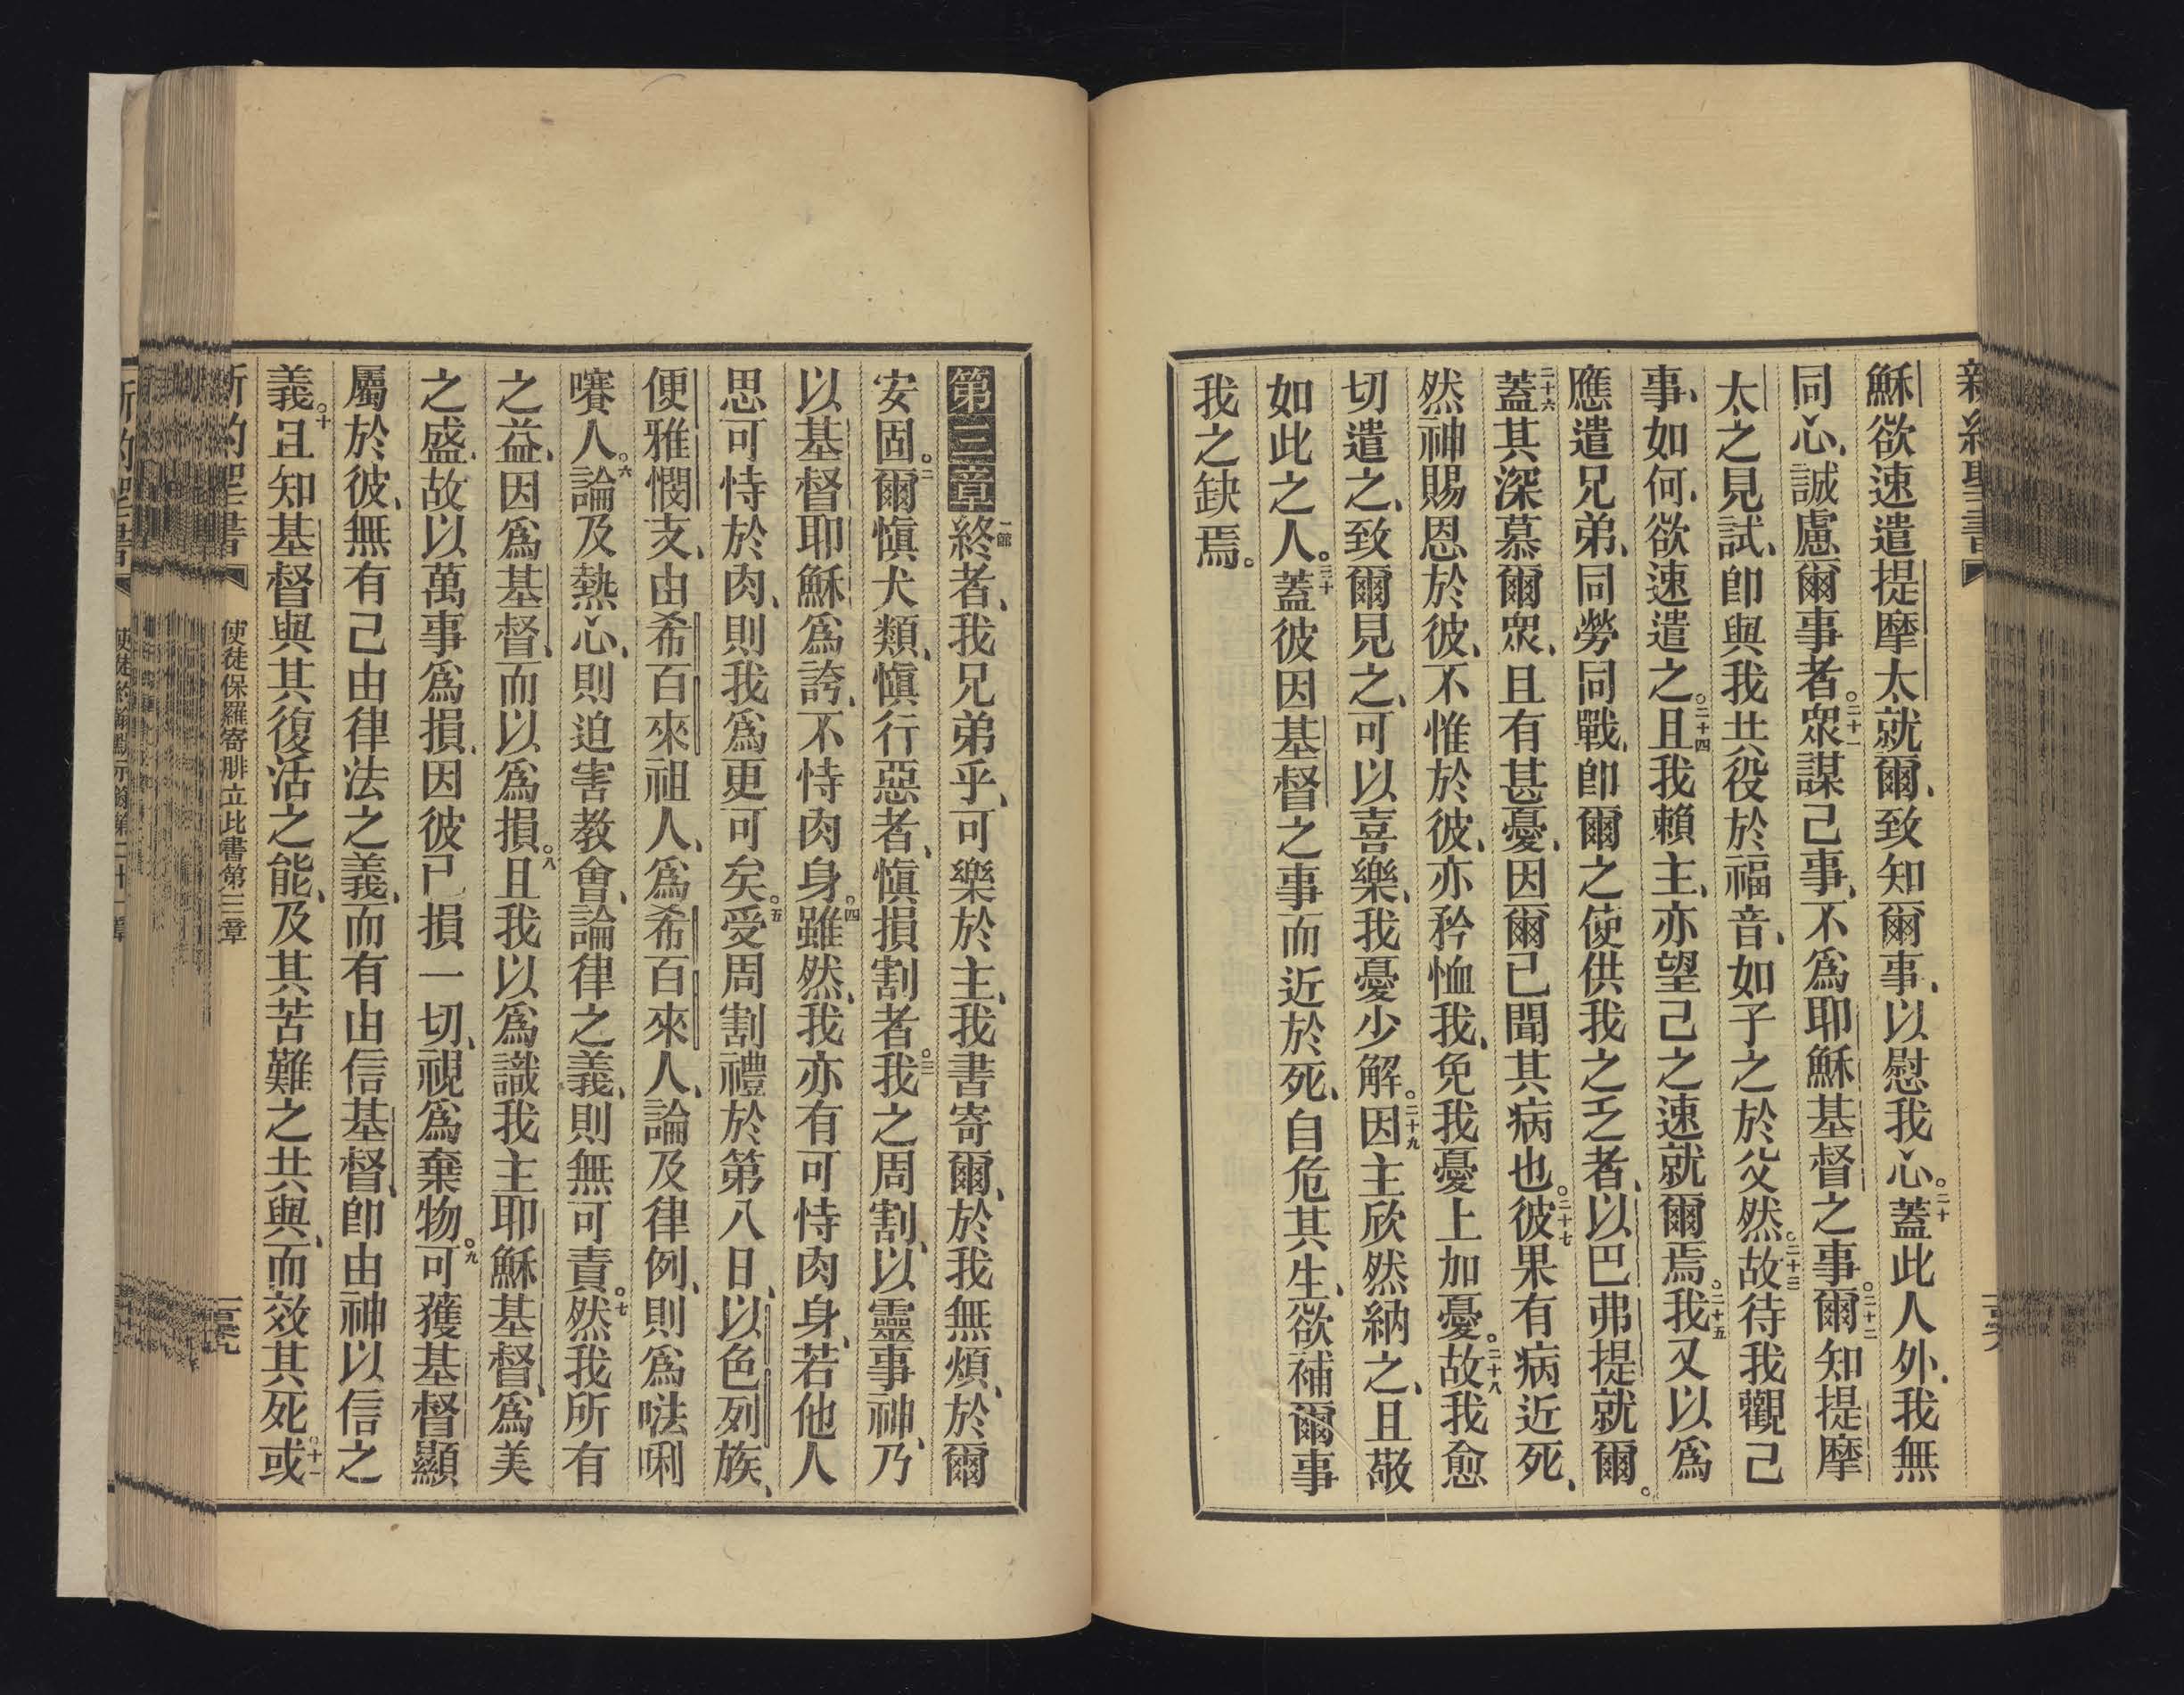 穌欲速遣提摩太就爾、致知爾事、以慰我心。二十蓋此人外、我無
同心、誠慮爾事者。二十一衆謀己事、不爲耶穌基督之事。二十二爾知提摩
太之見試、卽與我共役於福音、如子之於父然。二十三故待我觀己
事、如何、欲速遣之。二十四且我賴主、亦望己之速就爾焉。二十五我又以爲
應遣兄弟、同勞同戰、卽爾之使供我之乏者、以巴弗提就爾。
二十六蓋其深慕爾衆、且有甚憂、因爾已聞其病也。二十七彼果有病近死、
然神賜恩於彼、不惟於彼、亦矜恤我、免我憂上加憂。二十八故我愈
切遣之、致爾見之、可以喜樂、我憂少解。二十九因主欣然納之、且敬
如此之人。三十蓋彼因基督之事而近於死、自危其生、欲補爾事
我之缺焉。
第三章一節終者、我兄弟乎、可樂於主、我書寄爾、於我無煩、於爾
安固。二爾愼犬類、愼行惡者、愼損割者。三我之周割、以靈事神、乃
以基督耶穌爲誇、不恃肉身。四雖然、我亦有可恃肉身、若他人
思可恃於肉、則我爲更可矣。五受周割禮於第八日、以色列族、
便雅憫支、由希百來祖人、爲希百來人、論及律例、則爲𠵽唎
㘔人。六論及熱心、則迫害教會、論律之義、則無可責。七然我所有
之益、因爲基督、而以爲損。八且我以爲識我主耶穌基督、爲美
之盛、故以萬事爲損、因彼已損一切、視爲棄物。九可獲基督顯
屬於彼、無有己由律法之義、而有由信基督、卽由神以信之
義。十且知基督與其復活之能、及其苦難之共與、而效其死。十一或
使徒保羅寄腓立比書第三章